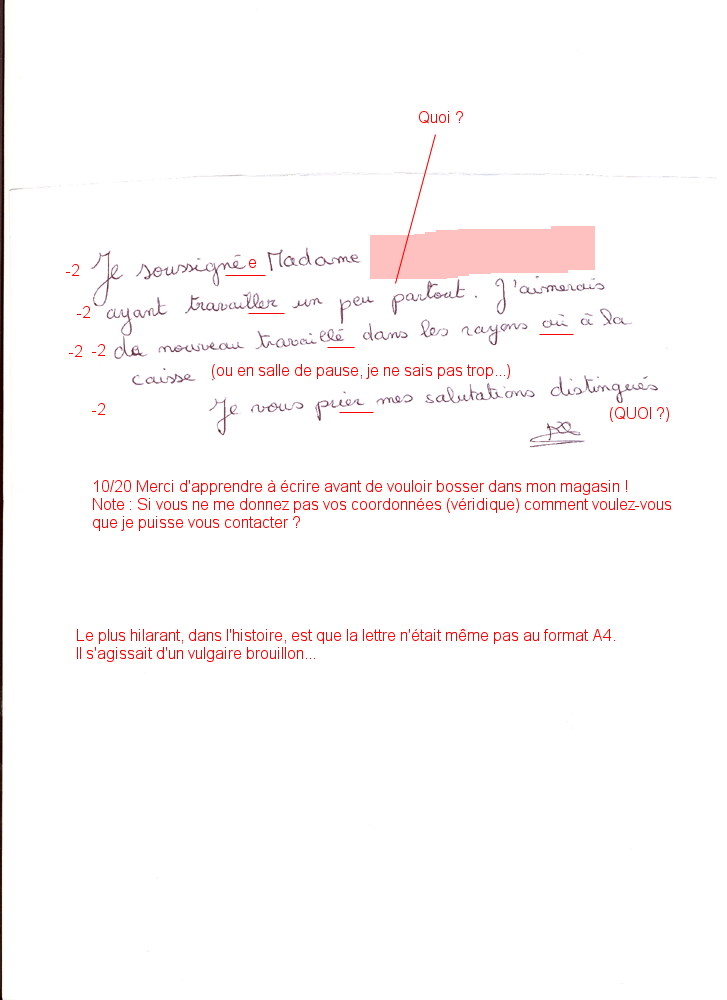 Quoi ?
-2 Je soussignée Madame
-2 ayant travailler un peu partout. J'aimerais
-2 -2 de nouveau travaillé dans les rayons où à la
caisse (ou en salle de pause, je ne sais pas trop...)
-2 Je vous prier mes salutations distingués
(QUOI ?)
10/20 Merci d'apprendre à écrire avant de vouloir bosser dans mon magasin !
Note : Si vous ne me donnez pas vos coordonnées (véridique) comment voulez-vous
que je puisse vous contacter ?
Le plus hilarant, dans l'histoire, est que la lettre n'était même pas au format A4.
Il s'agissait d'un vulgaire brouillon...